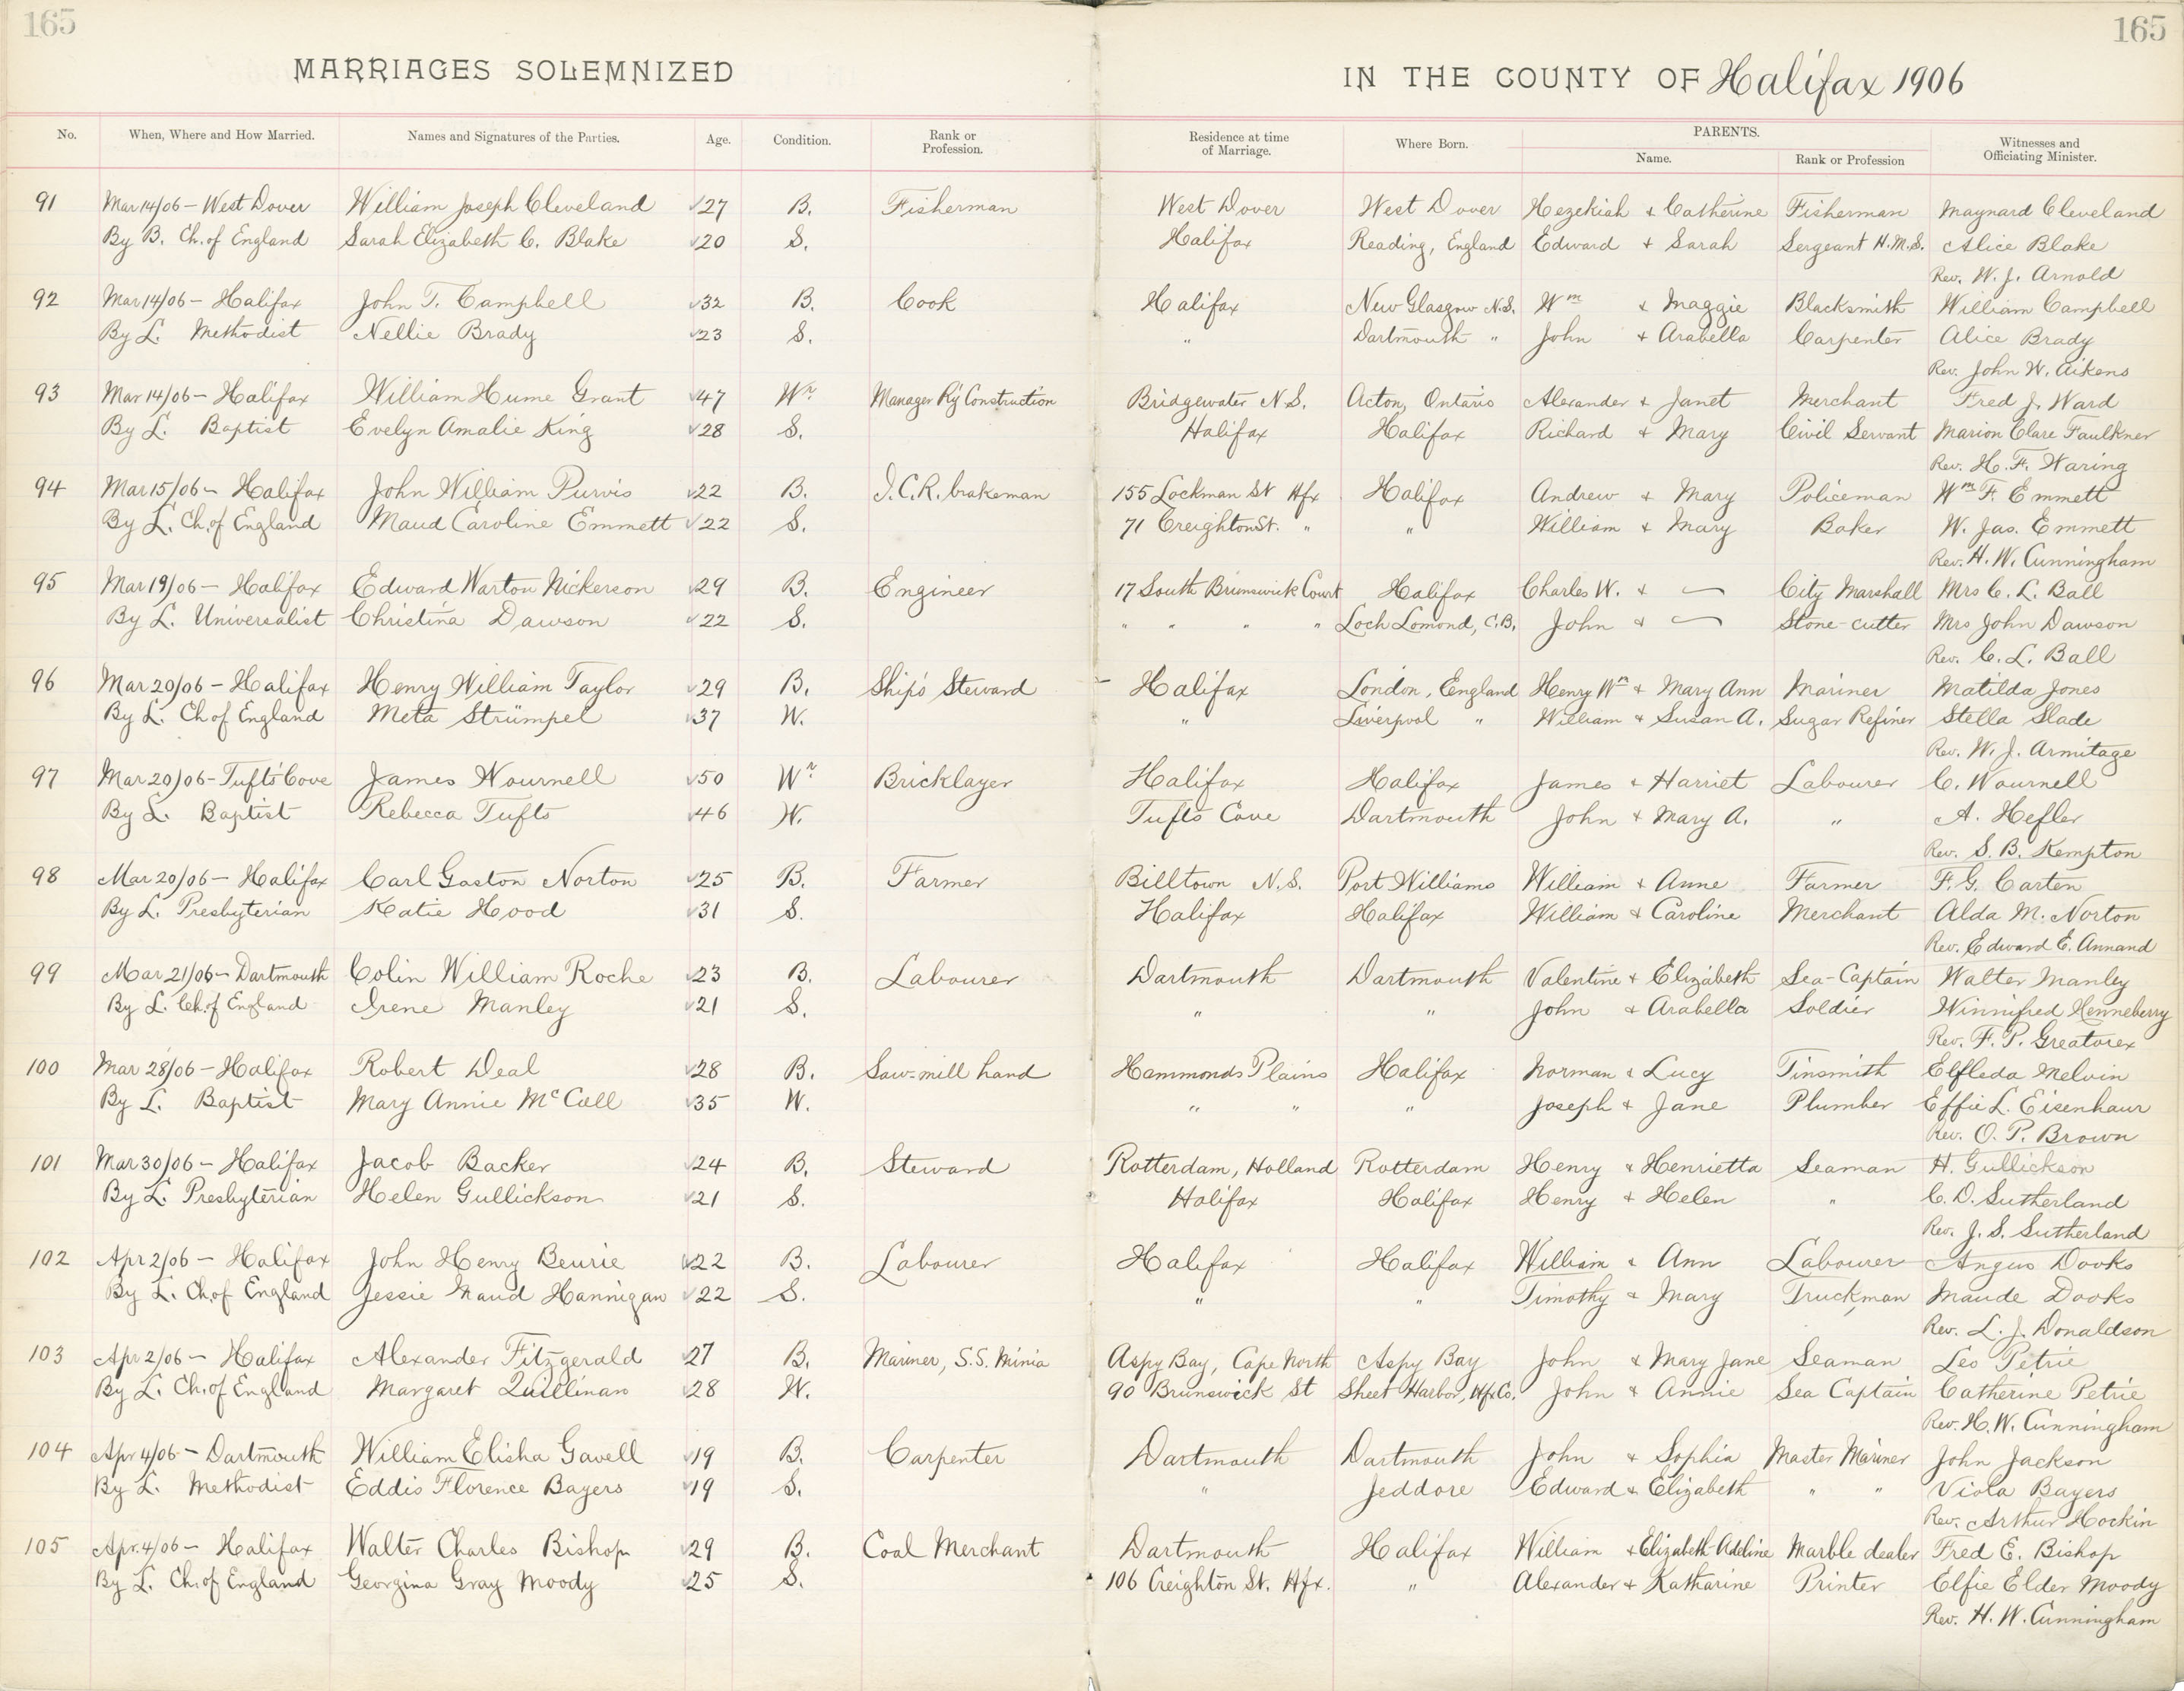 165 165
MARRIAGES SOLEMNIZED IN THE COUNTY OF Halifax 1906
No. When, Where and How Married. Names and Signatures of the Parties. Age. Condition. Rank or Profession. Residence at time of Marriage. Where Born. PARENTS. Name. Rank or Profession Witnesses and Officiating Minister.
91 Mar 14/06 – West Dover William Joseph Cleveland 27 B. Fisherman West Dover West Dover Hezekiah + Catherine Fisherman Maynard Cleveland
By B. Ch. of England Sarah Elizabeth C. Blake 20 S. Halifax Reading, England Edward + Sarah Sergeant H.M.S. Alice Blake
Rev. W. J. Arnold
92 Mar 14/06 – Halifax John T. Campbell 32 B. Cook Halifax New Glasgow N.S. Wm + Maggie Blacksmith William Campbell
By L. Methodist Nellie Brady 23 S. " Dartmouth " John + Arabella Carpenter Alice Brady
Rev. John W. Aikens
93 Mar 14/06 – Halifax William Hume Grant 47 Wr Manager Ry Construction Bridgewater N.S. Acton, Ontario Alexander + Janet Merchant Fred J. Ward
By L. Baptist Evelyn Amalie King 28 S. Halifax Halifax Richard + Mary Civil Servant Marion Clare Faulkner
Rev. H. F. Waring
94 Mar 15/06 – Halifax John William Purvis 22 B. I.C.R. brakeman 155 Lockman St Hfx Halifax Andrew + Mary Policeman Wm F. Emmett
By L. Ch. of England Maud Caroline Emmett 22 S. 71 Creighton St. " " William + Mary Baker W. Jas. Emmett
Rev. H. W. Cunningham
95 Mar 19/06 – Halifax Edward Warton Nickerson 29 B. Engineer 17 South Brunswick Court Halifax Charles W. + — City Marshall Mrs C. L. Ball
By L. Universalist Christina Dawson 22 S. " " " " Loch Lomond, C.B. John + — Stone-cutter Mrs John Dawson
Rev. C. L. Ball
96 Mar 20/06 – Halifax Henry William Taylor 29 B. Ship's Steward – Halifax London, England Henry Wm + Mary Ann Mariner Matilda Jones
By L. Ch of England Meta Strümpel 37 W. " Liverpool " William + Susan A. Sugar Refiner Stella Slade
Rev. W. J. Armitage
97 Mar 20/06 – Tufts Cove James Wournell 50 Wr Bricklayer Halifax Halifax James + Harriet Labourer C. Wournell
By L. Baptist Rebecca Tufts 46 W. Tufts Cove Dartmouth John + Mary A. " A. Hefler
Rev. S. B. Kempton
98 Mar 20/06 – Halifax Carl Gaston Norton 25 B. Farmer Billtown N.S. Port Williams William + Anne Farmer F. G. Carten
By L. Presbyterian Katie Hood 31 S. Halifax Halifax William + Caroline Merchant Alda M. Norton
Rev. Edward E. Annand
99 Mar 21/06 – Dartmouth Colin William Roche 23 B. Labourer Dartmouth Dartmouth Valentine + Elizabeth Sea-Captain Walter Manley
By L. Ch. of England Irene Manley 21 S. " " John + Arabella Soldier Winnifred Henneberry
Rev. F. P. Greatorex
100 Mar 28/06 – Halifax Robert Deal 28 B. Saw-mill hand Hammonds Plains Halifax Norman + Lucy Tinsmith Elfleda Melvin
By L. Baptist Mary Annie McCall 35 W. " " " Joseph + Jane Plumber Effie L. Eisenhaur
Rev. O. P. Brown
101 Mar 30/06 – Halifax Jacob Backer 24 B. Steward Rotterdam, Holland Rotterdam Henry + Henrietta Seaman H. Gullickson
By L. Presbyterian Helen Gullickson 21 S. Halifax Halifax Henry + Helen " C. D. Sutherland
Rev. J. S. Sutherland
102 Apr 2/06 – Halifax John Henry Beurie 22 B. Labourer Halifax Halifax William + Ann Labourer Angus Dooks
By L. Ch. of England Jessie Maud Hannigan 22 S. " " Timothy + Mary Truckman Maude Dooks
Rev. L. J. Donaldson
103 Apr 2/06 – Halifax Alexander Fitzgerald 27 B. Mariner, S.S. Minia Aspy Bay, Cape North Aspy Bay John + Mary Jane Seaman Leo Petrie
By L. Ch. of England Margaret Quillinan 28 W. 90 Brunswick St Sheet Harbor, Hfx Co. John + Annie Sea Captain Catherine Petrie
Rev. H. W. Cunningham
104 Apr 4/06 – Dartmouth William Elisha Gavell 19 B. Carpenter Dartmouth Dartmouth John + Sophia Master Mariner John Jackson
By L. Methodist Eddis Florence Bayers 19 S. " Jeddore Edward + Elizabeth " " Viola Bayers
Rev. Arthur Hockin
105 Apr. 4/06 – Halifax Walter Charles Bishop 29 B. Coal Merchant Dartmouth Halifax William + Elizabeth Adeline Marble dealer Fred E. Bishop
By L. Ch. of England Georgina Gray Moody 25 S. 106 Creighton St. Hfx. " Alexander + Katharine Printer Elfie Elder Moody
Rev. H. W. Cunningham